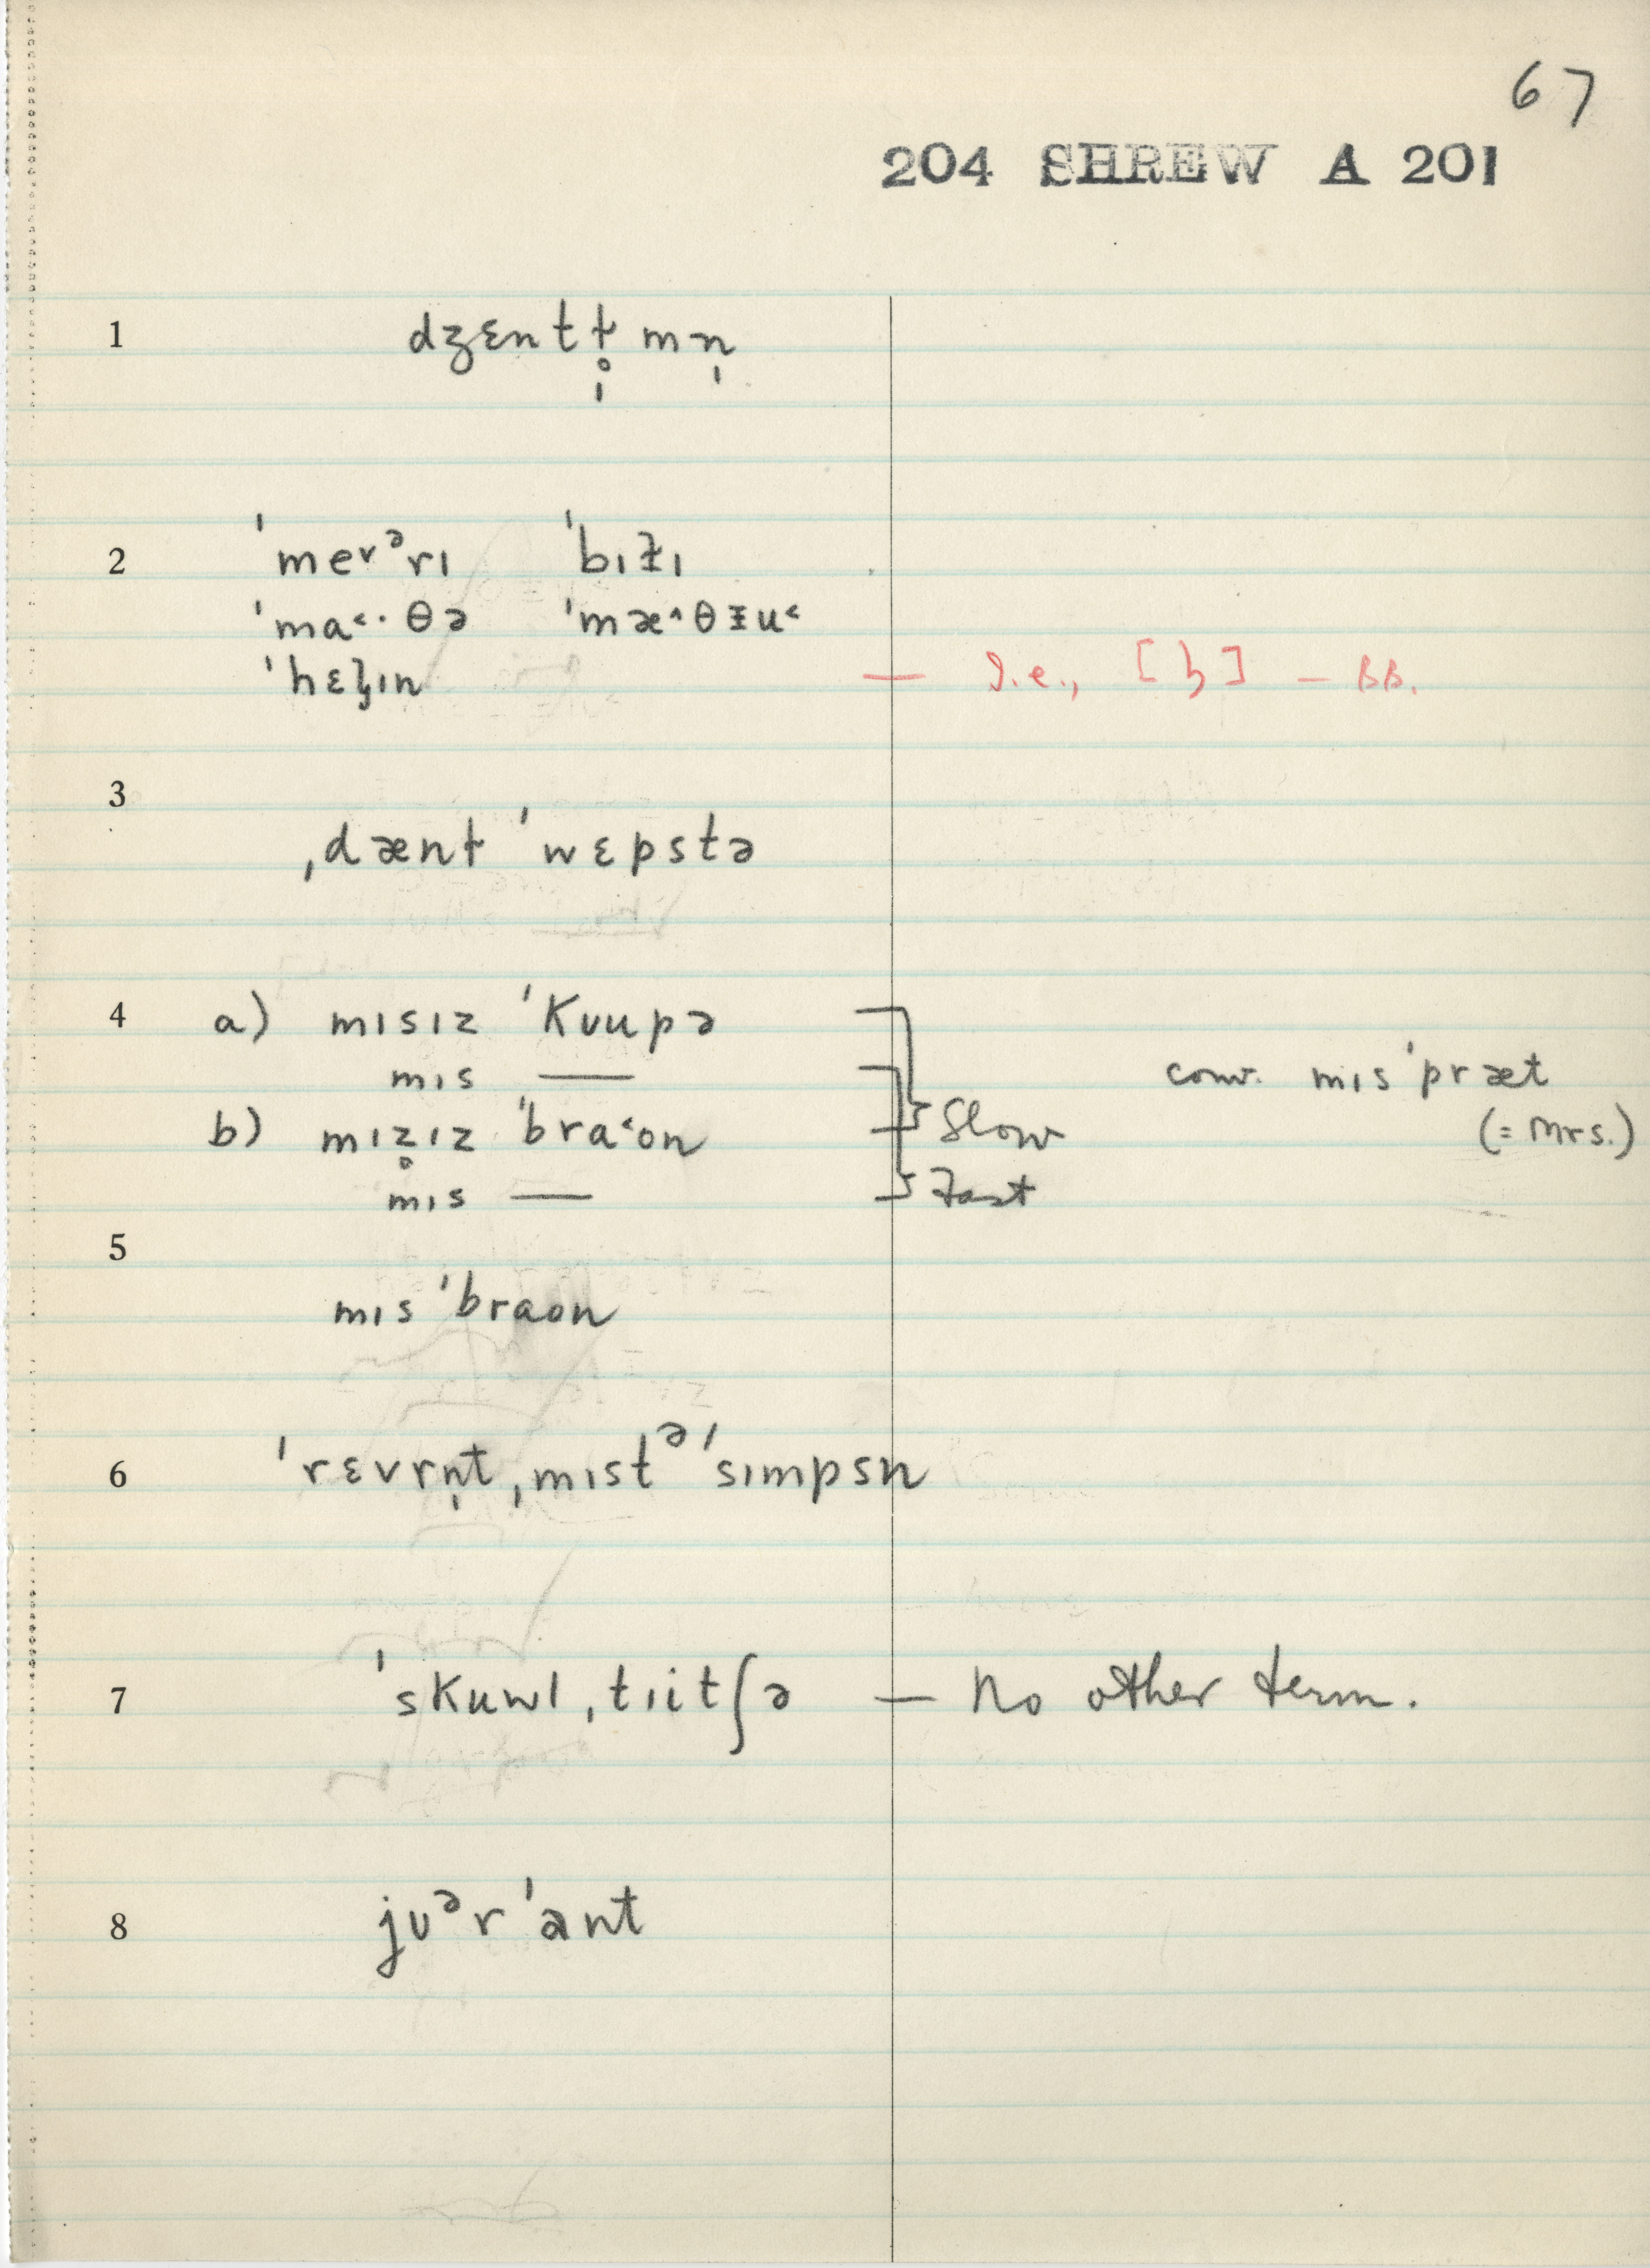 67
204 SHREW A 201
1 dʒɛntɫ̩̊mn̩
2 ˈme˅ᵊrɪ ˈbɪɫɪ
ˈma˂·θə ˈmæ˄θɪ̵u˂
ˈhɛɪn — I.e., [ɮ] — BB.
3 ˌdænɫ ˈwɛpstə
4 a) mɪsɪz ˈkʊupə
mɪs —
b) mɪz̥ɪz ˈbra˂on Slow
mɪs — Fast
conv. mɪsˈpræt
(= Mrs.)
5 mɪs ˈbraon
6 ˈrɛvrn̩t ˌmɪstᵊ ˈsɪmpsn
7 ˈskuwl ˌtɪitʃə — No other term.
8 jʊᵊr ˈant